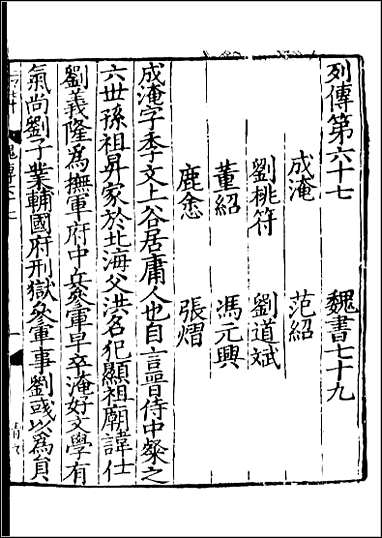 列傳第六十七　魏書七十九
成淹　范紹
劉桃符　劉道斌
董紹　馮元興
鹿悆　張熠
成淹字季文上谷居庸人也自言晉侍中粲之
六世孫祖昇家於北海父洪名犯顯祖廟諱仕
劉義隆爲撫軍府中兵叅軍早卒淹好文學有
氣尚劉子業輔國府刑獄叅軍事劉彧以爲員